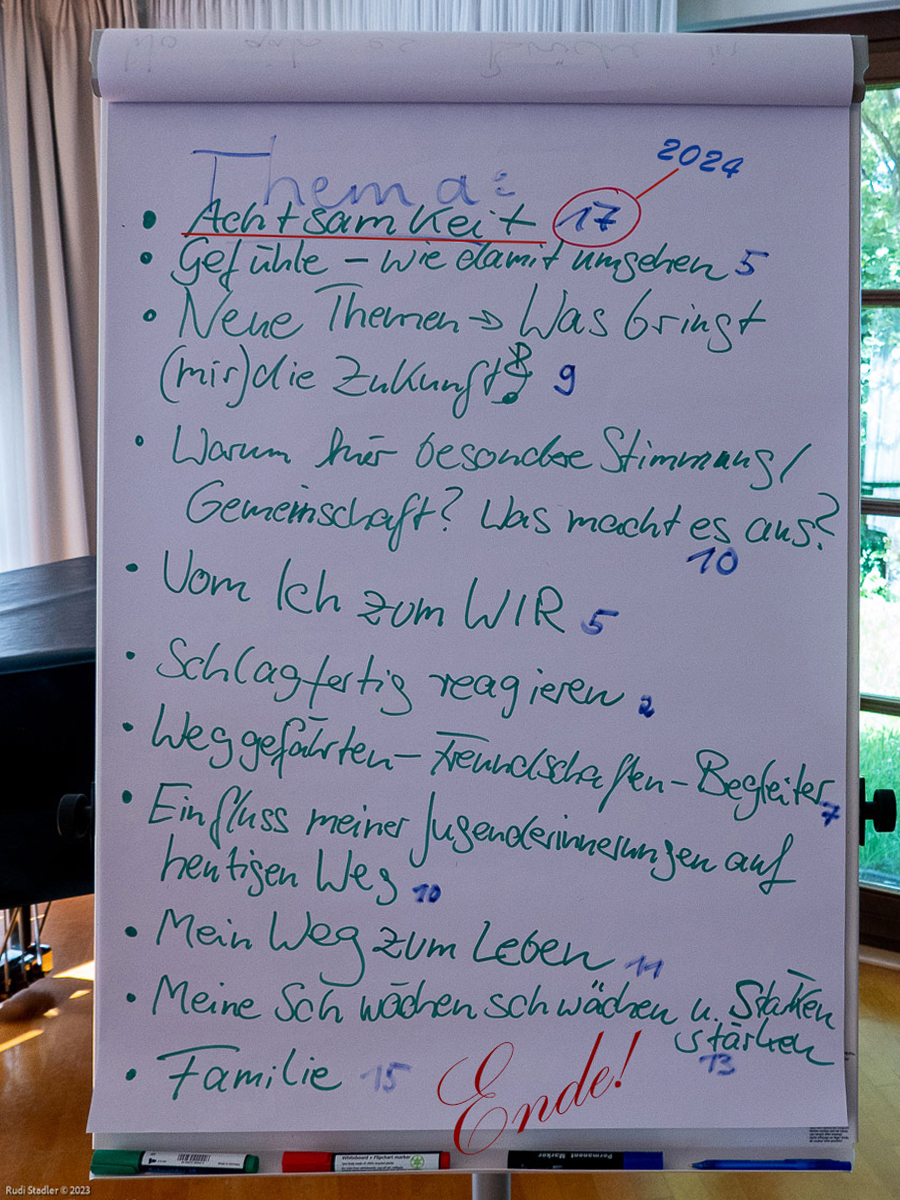 2024
Thema:
• Achtsamkeit 17
• Gefühle – wie damit umgehen 5
• Neue Themen → Was bringt
(mir) die Zukunft? 9
• Warum hier besondere Stimmung /
Gemeinschaft? Was macht es aus?
10
• Vom Ich zum WIR 5
• Schlagfertig reagieren 2
• Weggefährten – Freundschaften – Begleiter
7
• Einfluss meiner Jugenderinnerungen auf
heutigen Weg 10
• Mein Weg zum Leben 11
• Meine Schwächen schwächen u. Stärken
stärken
13
• Familie 15
Ende!
Whiteboard + Flipchart marker
Permanent Marker
Rudi Stadler © 2023